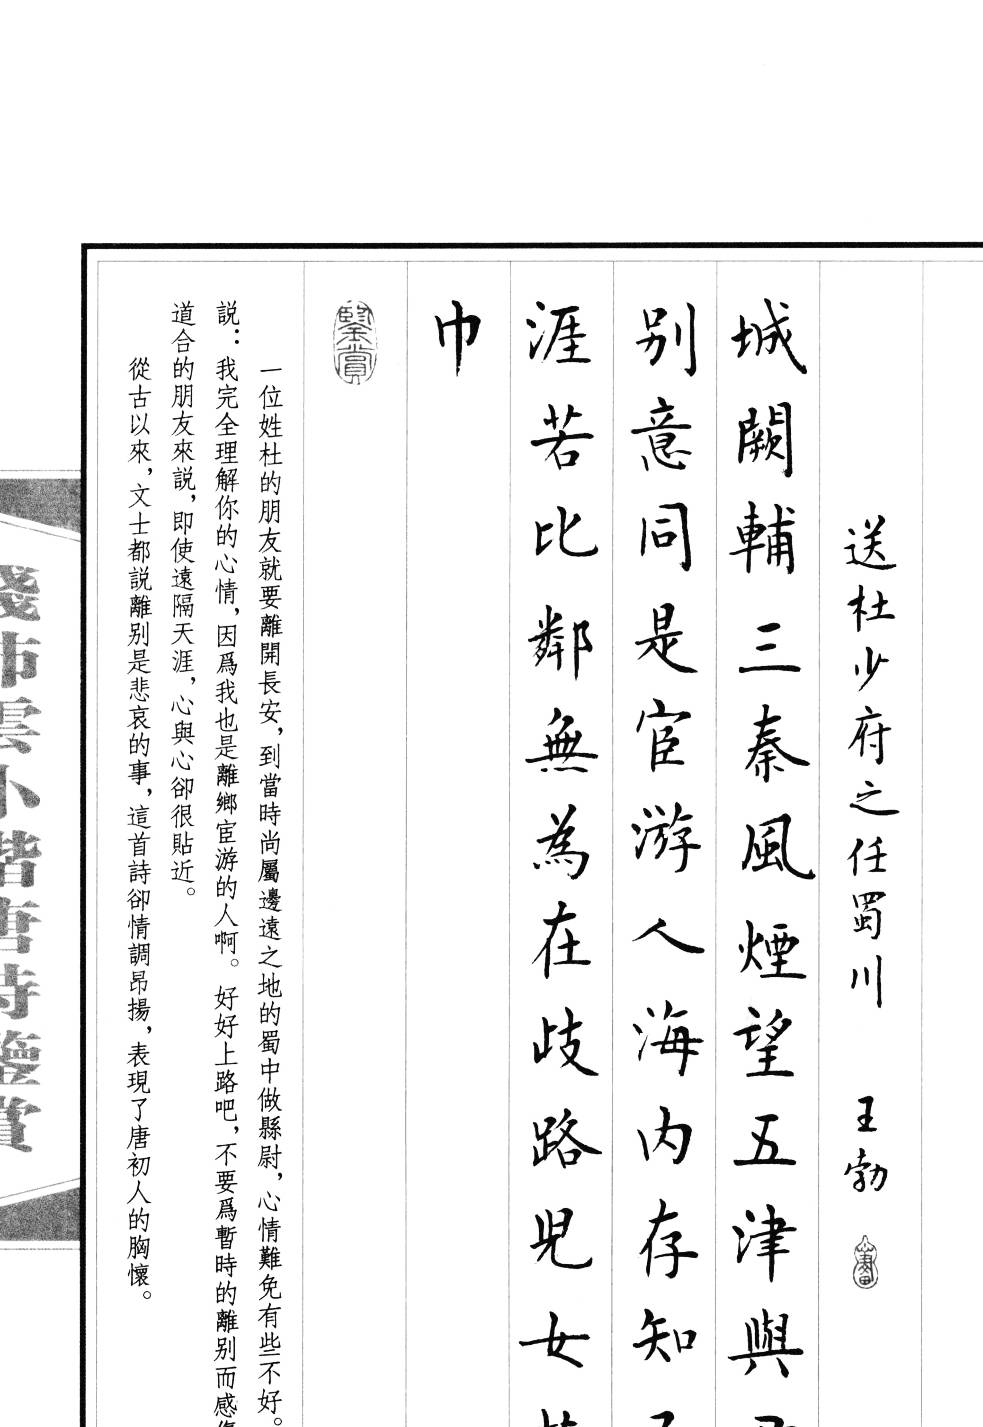 送杜少府之任蜀川 王勃
城闕輔三秦風煙望五津與
別意同是宦游人海内存知
涯若比鄰無為在歧路兒女
巾
鑒賞
一位姓杜的朋友就要離開長安，到當時尚屬邊遠之地的蜀中做縣尉，心情難免有些不好。
説：我完全理解你的心情，因爲我也是離鄉宦游的人啊。好好上路吧，不要爲暫時的離別而感
道合的朋友來説，即使遠隔天涯，心與心卻很貼近。
從古以來，文士都説離別是悲哀的事，這首詩卻情調昂揚，表現了唐初人的胸懷。
雲小楷唐詩鑒賞